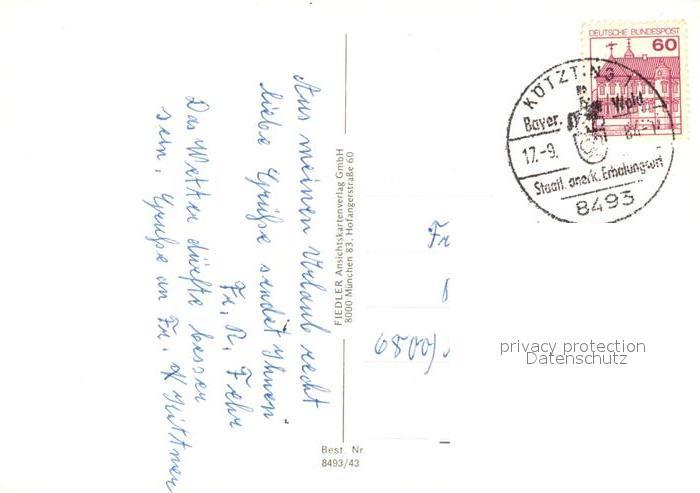 Aus meinen Urlaub recht
liebe Grüße sendet Ihnen
Fr. R. Fehr
Das Wetter dürfte besser
sein. Grüße an Fr.
FIEDLER Ansichtskartenverlag GmbH
8000 München 83, Hofangerstraße 60
Best Nr
8493/43
DEUTSCHE BUNDESPOST
60
KÖTZTING
Bayer. Wald
17.-9.
84
Staatl. anerk. Erholungsort
8493
Fr
6800
privacy protection
Datenschutz